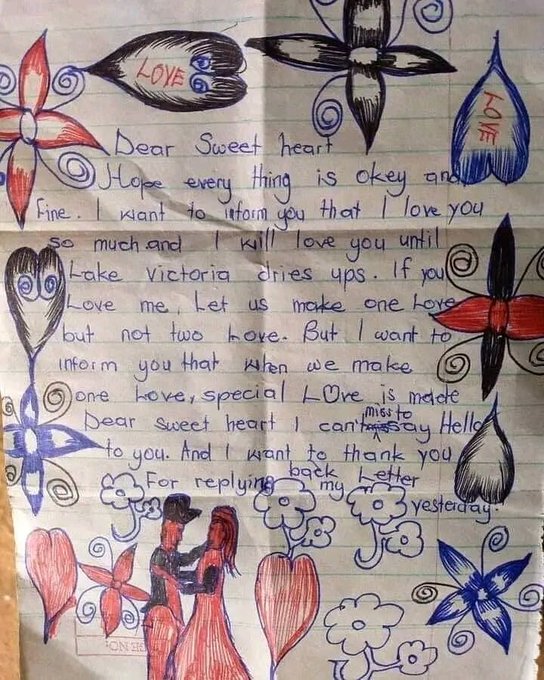 LOVE
LOVE
Dear Sweet heart
Hope every thing is okey and
Fine. I want to inform you that I love you
so much and I will love you until
Lake victoria dries ups. If you
Love me, Let us make one Love
but not two Love. But I want to
inform you that when we make
one Love, special Love is made
Dear sweet heart I can't miss to say Hello
to you. And I want to thank you
For replying back my Letter
yesterday.